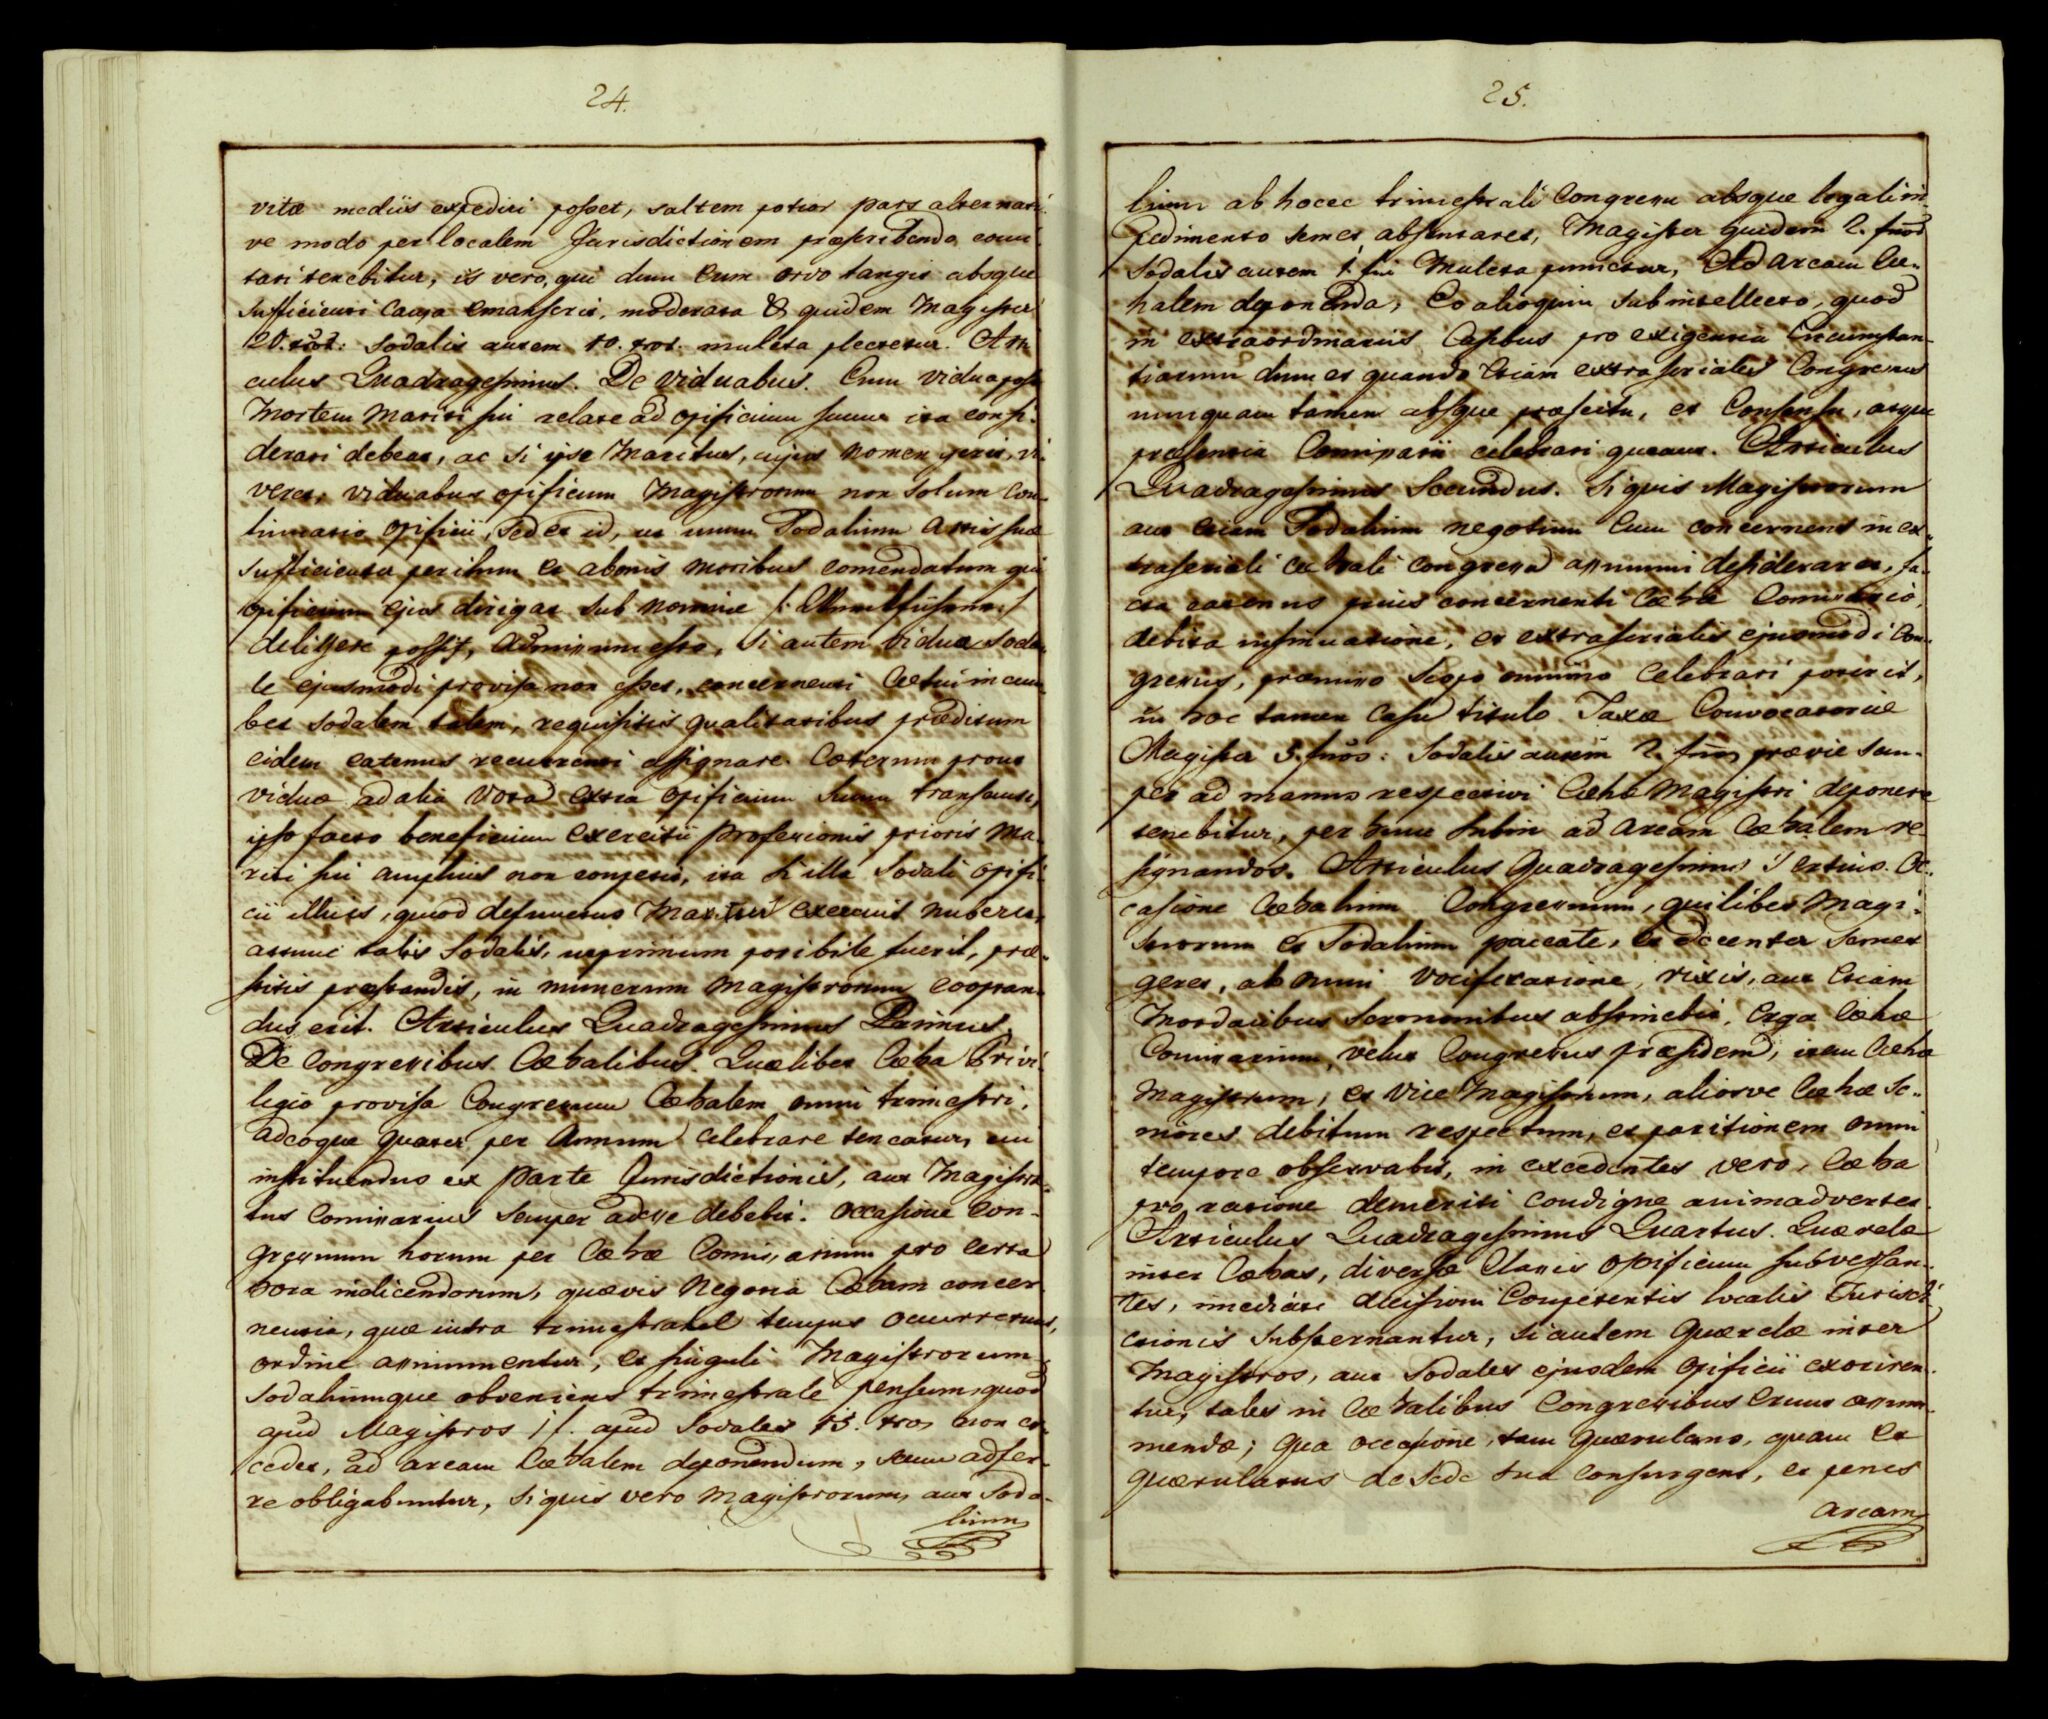 24.
vitæ mediis expediri posset, saltem potior pars alternati
ve modo per localem Jurisdictionem præscribendo comi
tari tenebitur, is vero, qui dum eum ordo tangit absque
sufficienti causa emanserit, moderata & quidem Magister
20. xros: Sodalis autem 10. xros. mulcta plectetur. Arti
culus Quadragesimus. De Viduabus. Cum Vidua post
Mortem Mariti sui relate ad opificium suum ita consi-
derari debeat, ac si ipse Maritus, cujus nomen gerit, vi-
veret, viduabus opificum Magistrorum non solum Con-
tinuatio opificii, sed et id, ut unum Sodalium Artis suæ
sufficienter peritum et a bonis moribus comendatum qui
opificium ejus dirigat sub nomine
deligere possit, admissum esto, si autem vidua soda-
le ejusmodi provisa non esset, concernenti Cœtui incum
bet sodalem talem, requisitis qualitatibus præditum
eidem eatenus recurrenti assignare. Cæterum prout
viduæ ad alia Vota extra opificium suum transeunti,
ipso facto beneficium exercitii professionis prioris Ma-
riti sui amplius non competit, ita si illa Sodali opifi-
cii illius, quod defunctus Maritus exercuit nuberet,
attunc talis Sodalis, ut primum possibile fuerit, præ-
stitis præstandis, in numerum Magistrorum cooptan-
dus erit. Articulus Quadragesimus Primus.
De Congressibus Cæhalibus. Quælibet Cæha Privi-
legio provisa Congressum Cæhalem omni trimestri,
adeoque quater per Annum celebrare teneatur, cui
instituendus ex parte Jurisdictionis, aut Magistra-
tus Comissarius semper adesse debebit. Occasione Con-
gressuum horum per Cæhæ Comissarium pro certa
hora indicendorum, quævis Negotia Cæham concer
nentia, quæ intra trimestrale tempus occurrerunt,
ordine assumentur, et singuli Magistrorum
Sodaliumque obveniens trimestrale pensum, quod
apud Magistros 1 f. apud Sodales 15. xros non ex-
cedet, ad arcam Cæhalem deponendum, secum adfer-
re obligabuntur, si quis vero Magistrorum, aut Soda-
lium
25.
lium ab hocce trimestrali Congressu absque legali im-
pedimento semet absentaret, Magister quidem 2. fnos
Sodalis autem 1. fni Mulcta punietur, ad arcam Cæ-
halem deponenda, Eo alioquin subintellecto, quod
in extraordinariis Casibus pro exigentia Circumstan-
tiarum dum et quando etiam extraseriales Congressus
nunquam tamen absque præscitu, et Consensu, atque
præsentia Comissarii celebrari queant. Articulus
Quadragesimus Secundus. Si quis Magistrorum
aut etiam Sodalium negotium Eum concernens in ex-
traseriali cæhali congressu assummi desideraret, fa-
cta eatenus prius concernenti Cæhæ Comissario,
debita insinuatione, et extraserialis ejusmodi Con-
gressus, præmisso Scopo omnino Celebrari poterit,
in hoc tamen Casu titulo Taxæ Convocatoriæ
Magister 3. fnos: Sodalis autem 2. fnos prævie sem-
per ad manus respectivi Cæhæ Magistri deponere
tenebitur, per hunc subin ad Arcam Cæhalem re-
signandos. Articulus Quadragesimus Tertius. Oc-
casione Cæhalium Congressuum, quilibet Magi-
strorum et Sodalium paccate, et decenter semet
geret, ab omni vociferatione, rixis, aut etiam
Mordacibus Sermonibus abstinebit, Erga Cæhæ
Comissarium, velut Congressus præsidem, item Cæhæ
Magistrum, et Vice Magistrum, aliosve Cæhæ Se-
niores debitum respectum, et paritionem omni
tempore observabit, in excedentes vero, Cæha
pro ratione demeriti condigne animadvertet.
Articulus Quadragesimus Quartus. Querelæ
inter Cæhas, diversæ Classis opificum subversan-
tes, imediate decisioni Competentis localis Jurisdi-
ctionis Substernantur, si autem Querelæ inter
Magistros, aut Sodales ejusdem opificii exoriren-
tur, tales in Cæhalibus Congressibus erunt assum-
mendæ; qua occasione, tam Quærulans, quam et
quærulatus de Sede sua consurgent, et penes
arcam